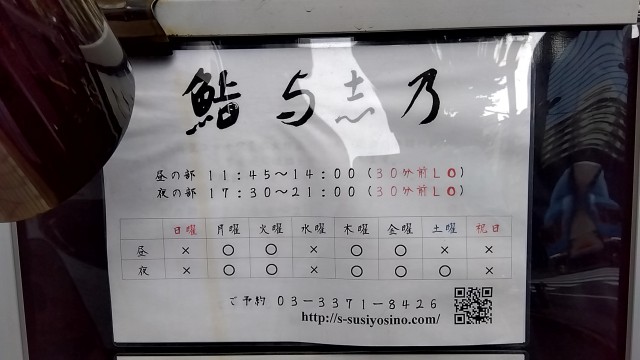 鮨 与志乃
昼の部 11:45〜14:00(30分前LO)
夜の部 17:30〜21:00(30分前LO)
日曜 月曜 火曜 水曜 木曜 金曜 土曜 祝日
昼 × ○ ○ × ○ ○ × ×
夜 × ○ ○ × ○ ○ ○ ×
ご予約 03-3371-8426
http://s-susiyosino.com/